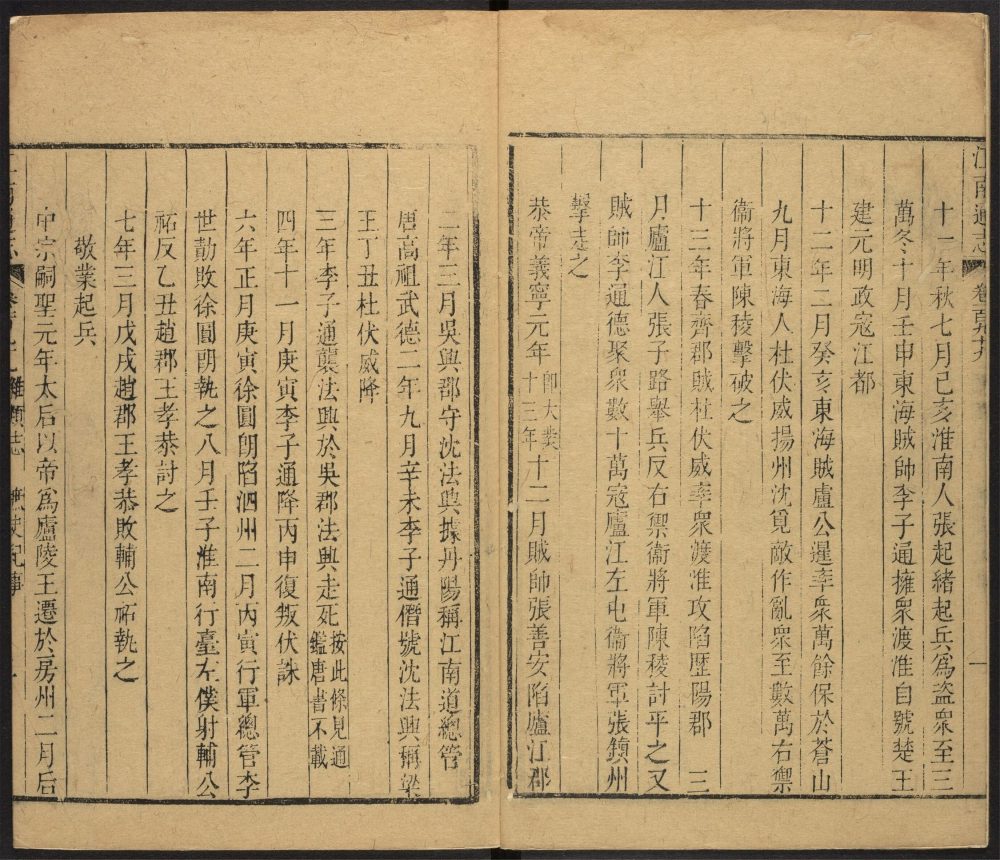 江南通志 卷 一
十一年秋七月己亥淮南人張起緒起兵為盜衆至三
萬冬十月壬申東海賊帥李子通擁衆渡淮自號楚王
建元明政寇江都
十二年二月癸亥東海賊盧公暹率衆萬餘保於蒼山
九月東海人杜伏威揚州沈覓敵作亂衆至數萬右禦
衛將軍陳稜擊破之
十三年春齊郡賊杜伏威率衆渡淮攻陷歷陽郡 三
月廬江人張子路舉兵反右禦衛將軍陳稜討平之又
賊帥李通德聚衆數十萬寇廬江左屯衛將軍張鎮州
擊走之
恭帝義寧元年即大業十三年十二月賊帥張善安陷廬江郡
二年三月吳興郡守沈法興據丹陽稱江南道總管
唐高祖武德二年九月辛未李子通僭號沈法興稱梁
王丁丑杜伏威降
三年李子通襲法興於吳郡法興走死按此條見通鑑唐書不載
四年十一月庚寅李子通降丙申復叛伏誅
六年正月庚寅徐圓朗陷泗州二月丙寅行軍總管李
世勣敗徐圓朗執之八月壬子淮南行臺左僕射輔公
祏反乙丑趙郡王孝恭討之
七年三月戊戌趙郡王孝恭敗輔公祏執之
敬業起兵
中宗嗣聖元年太后以帝為廬陵王遷於房州二月后
雜類志 紀事 一